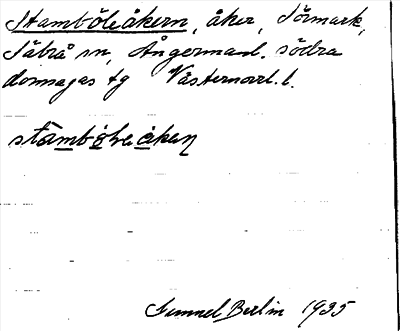 Stamböleåkern, åker, Sörmark,
Säbrå sn, Ångermanl. södra
domsagas tg Västernorrl. l.
stamböleåkeɳ
Gunnel Berlin 1935